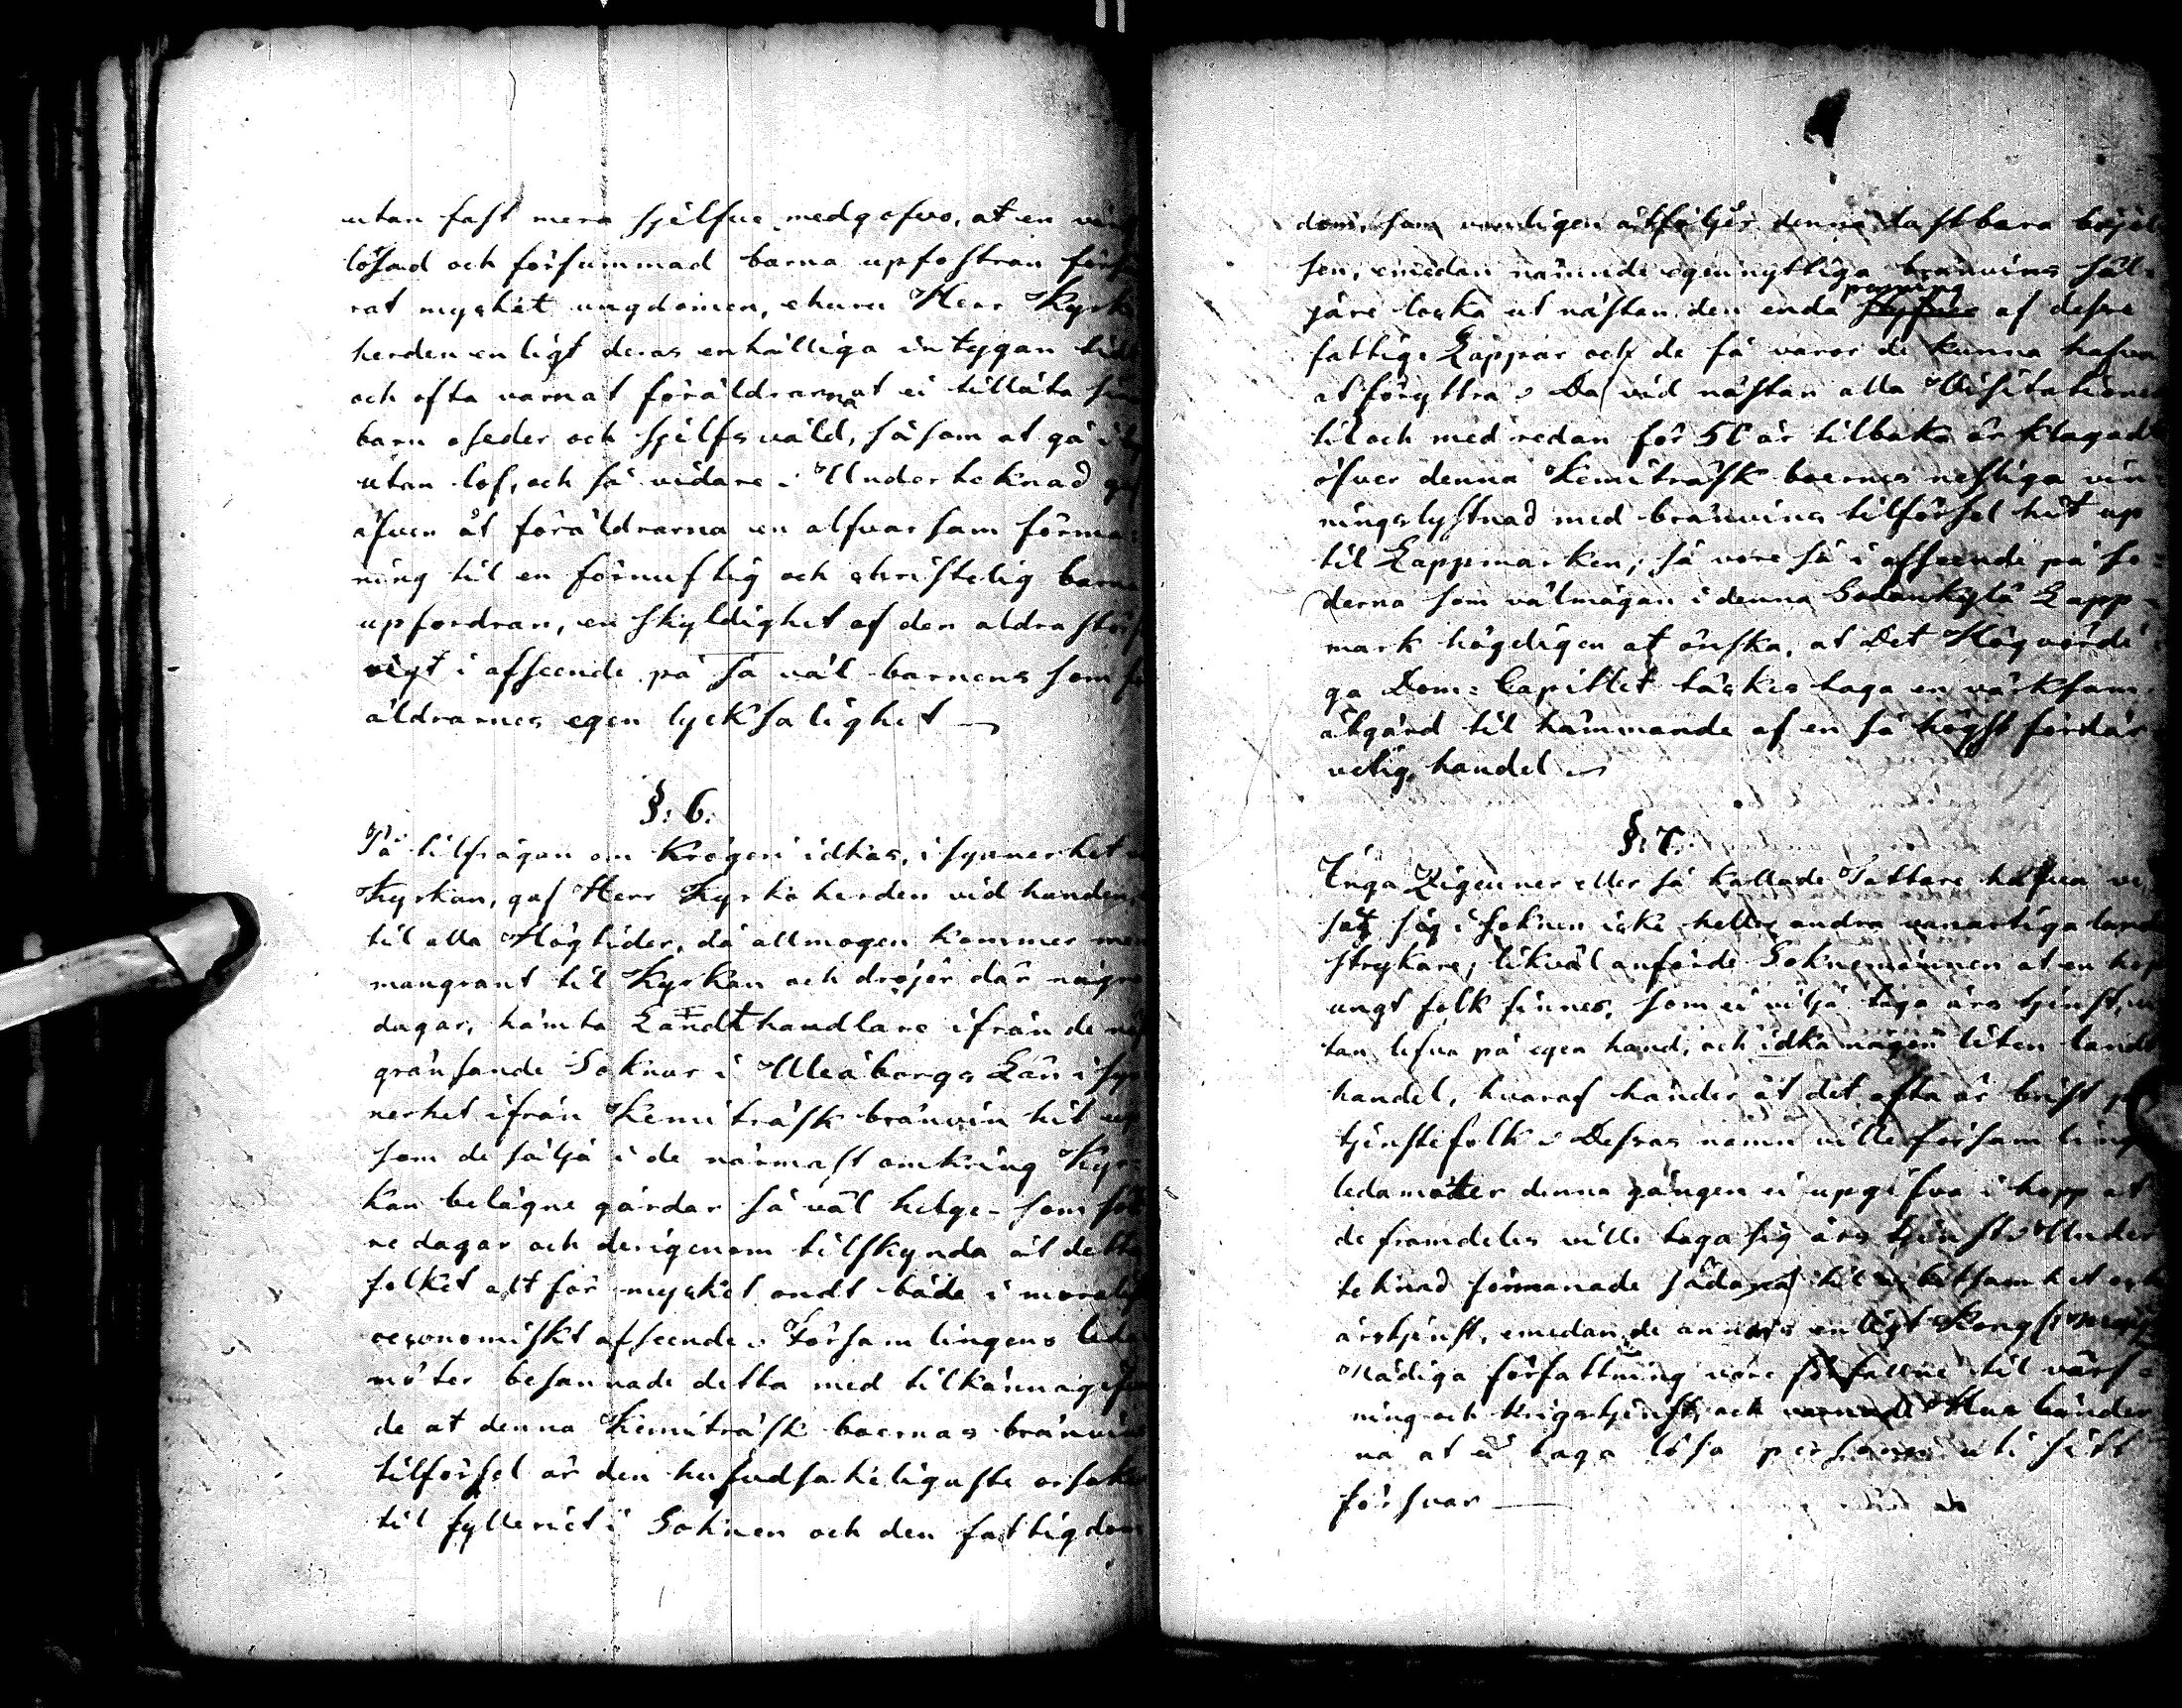 utan fast mera sjelfve medgofvo, at en
lösad och försummad barna upfostran
rat mycket ungdomen, ehuru Herr Kyrko
herden enligt deras enhälliga intygan
och ofta varnat föräldrarna at ei tillåta
barn oseder och sjelfsvåld, såsom at gå
utan lof, och så vidare. Undertecknad
äfven åt föräldrarna en alfvarsam förma:
ning til en förnuftig och christelig barna
upfordran, en skyldighet af den aldrastörs
vigt i afseende på så väl barnens som
äldrarnes egen lycksalighet
§: 6.
På tilfrågan om Krögeri idkas, i synnerhet
Kyrkan, gaf Herr Kyrkoherden vid handen,
til alla Högtider, då allmogen kommer
mangrant til Kyrkan och dröjer där några
dagar, hämta Landthandlare ifrån de
gränsande Soknar i Uleåborgs Län i syn
nerhet ifrån Kemiträsk bränvin hit up
som de sälja i de närmast omkring Kyr:
kan belägne gårdar så väl helge- som
ne dagar och derigenom tilskynda åt detta
folket alt för mycket ondt både i
oeconomiskt afseende. Församlingens leda
möter besannade detta med tilkännagifvan
de at denna Kemiträsk boernas bränvins
tilförsel är den hufvudsakeligaste orsaken
til fylleriet i Soknen och den fattigdom
dom, som vanligen åtföljer denna lastbara böjel
sen, emedan nämnde egennyttiga bränvins säl:
jare locka ut nästan den enda penning af desse
fattige Lappar och de få varor de kunna hafva
at föryttra. Då vid nästan alla Visitationer
til och med redan för 50 år tilbaka är klagadt
öfver denna Kemiträsk boernes nesliga vin:
ningslystnad med bränvins tilförsel hit up
til Lappmarken; så vore så i afseende på se:
derna som välmågan i denna Sodankylä Lapp:
mark högeligen at önska, at Det Högvördi
ga Dom: Capitlet täckes taga en värksam
åtgärd til hämmande af en så högst fördär
velig handel
§: 7.
Inga Zigeuner eller så kallade Tattare hafva
satt sig i Soknen icke heller andra vanartiga land
strykare; likväl anförde Soknemännen at en hop
ungt folk finnes, som ei vilja taga års tjenst, u
tan lefva på egen hand, och idka någon liten landt
handel, hvaraf händer at det ofta är brist på
tjenstefolk. Dessas namn ville församlings
ledamöter denna gången ei upgifva i hopp at
de framdeles ville taga sig års tjenst. Under
tecknad förmanade sådana til och
årstjenst, emedan de annars enligt Kongl: Maj:ts
Nådiga författning vore förfallne til värf:
ning och krigstjenst, och varnade
na at ei taga lösa personer uti sitt
försvar